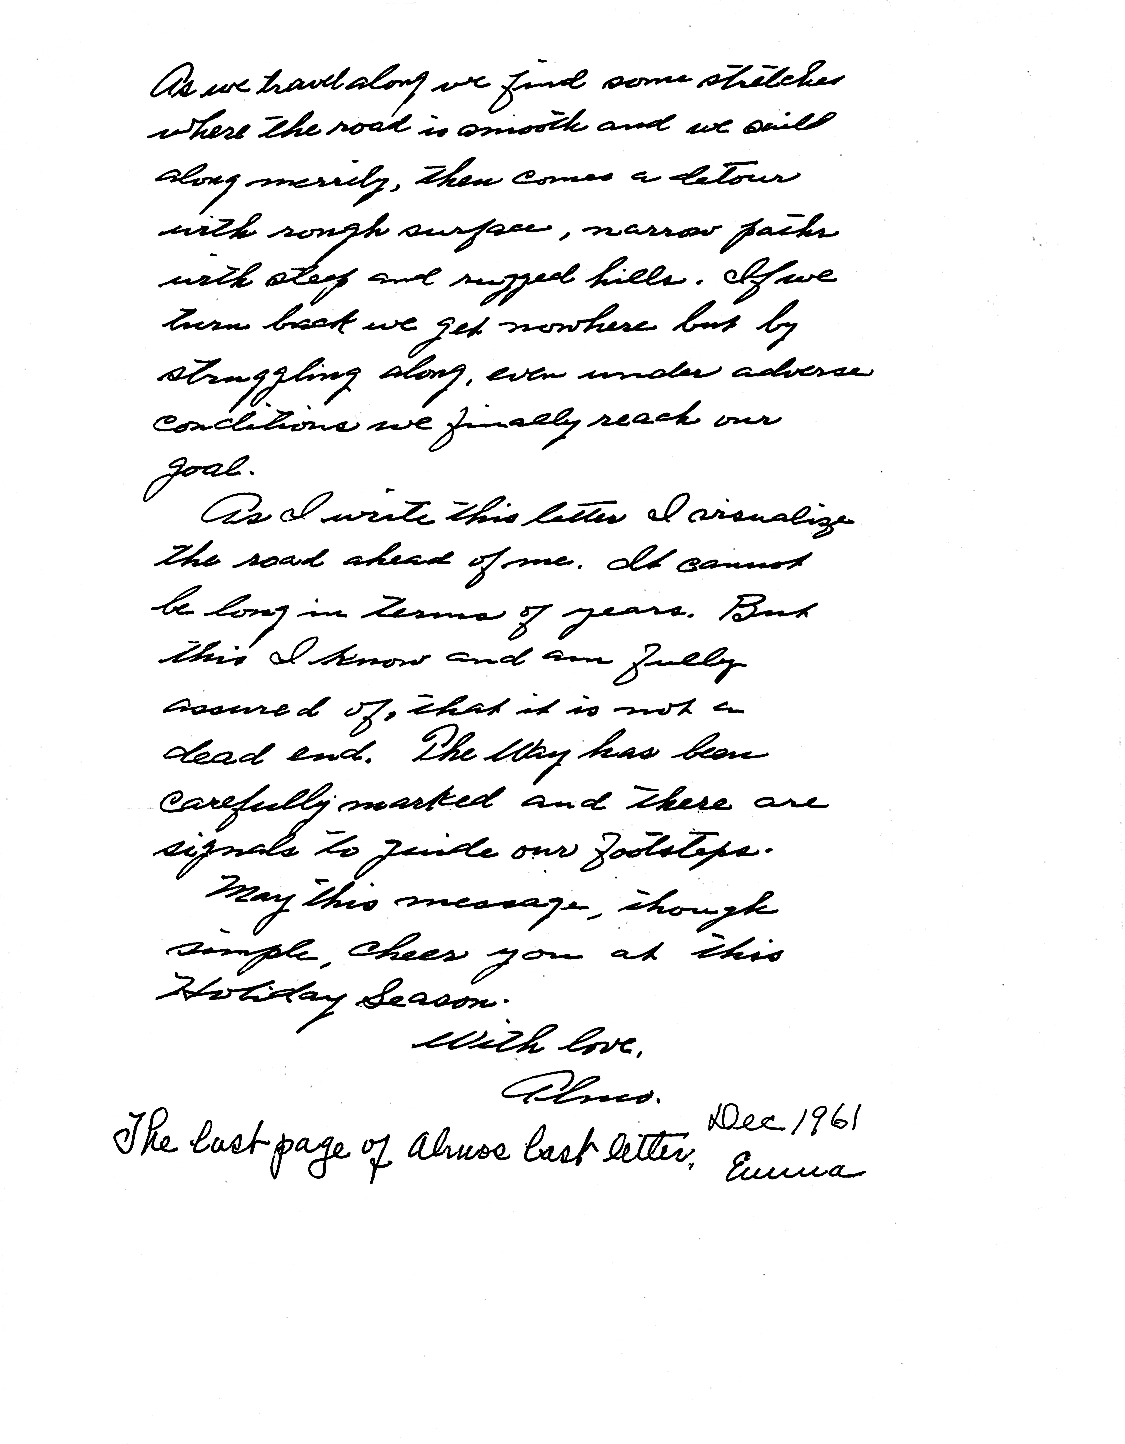 As we travel along we find some stretches
where the road is smooth and we sail
along merrily, then comes a detour
with rough surface, narrow paths
with steep and rugged hills. If we
turn back we get nowhere but by
struggling along, even under adverse
conditions we finally reach our
goal.
As I write this letter I visualize
the road ahead of me. It cannot
be long in terms of years. But
this I know and am fully
assured of, that it is not a
dead end. The Way has been
carefully marked and there are
signals to guide our footsteps.
May this message, though
simple, cheer you at this
Holiday Season.
With love,
Almo.
Dec 1961
The last page of Almos last letter,
Emma